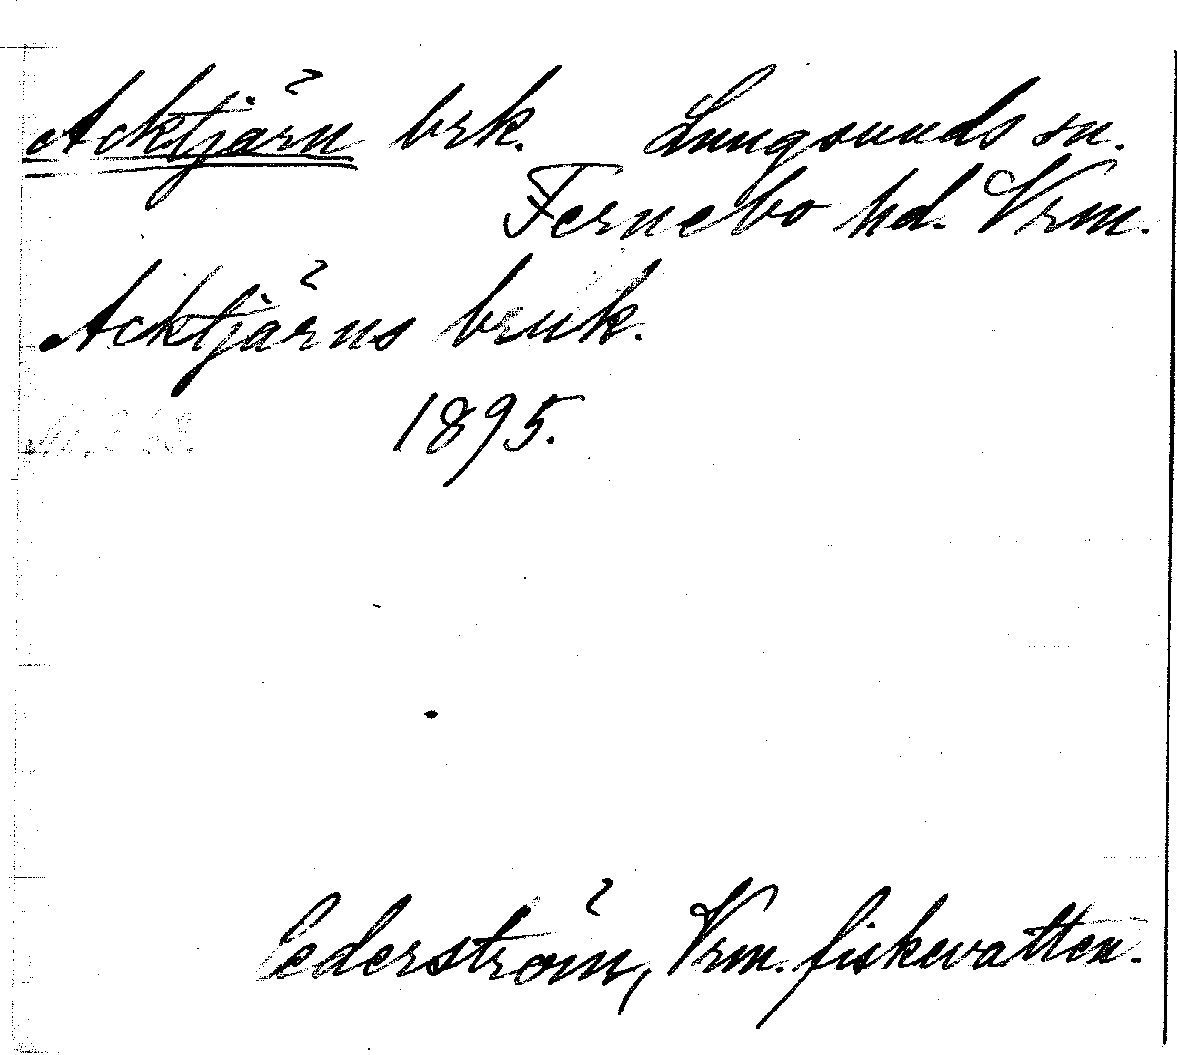 Acktjärn brk. Lungsunds sn.
Fernebo hd. Vrm.
Acktjärns bruk.
1895.
Cederström, Vrm. fiskevatten.